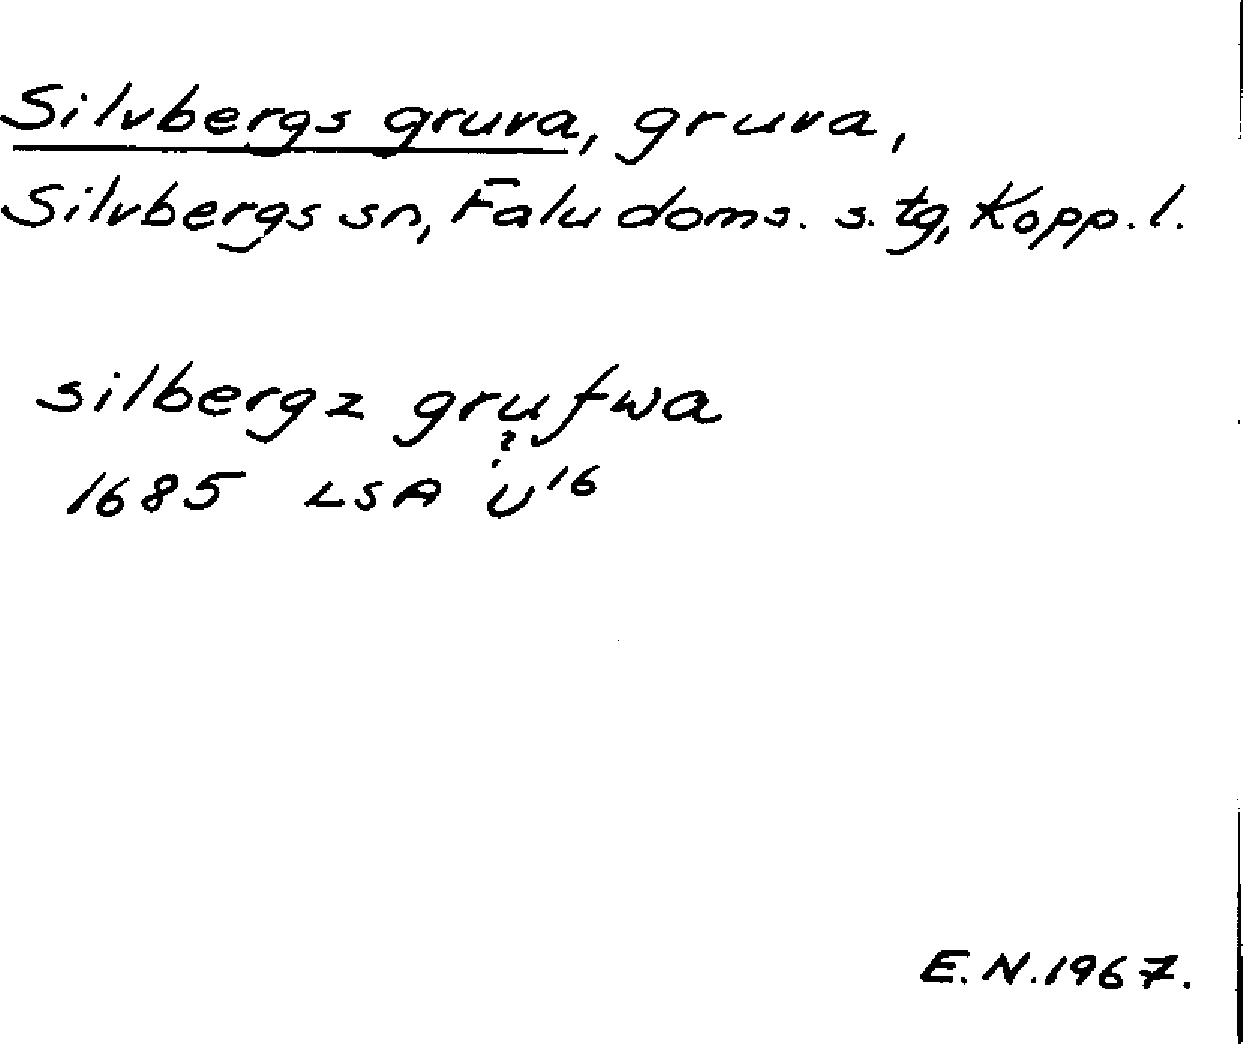 Silvbergs gruva, gruva,
Silvbergs sn, Falu doms. s. tg, Kopp. l.
silbergz grufwa
?
1685 LSA U16
E. N. 1967.